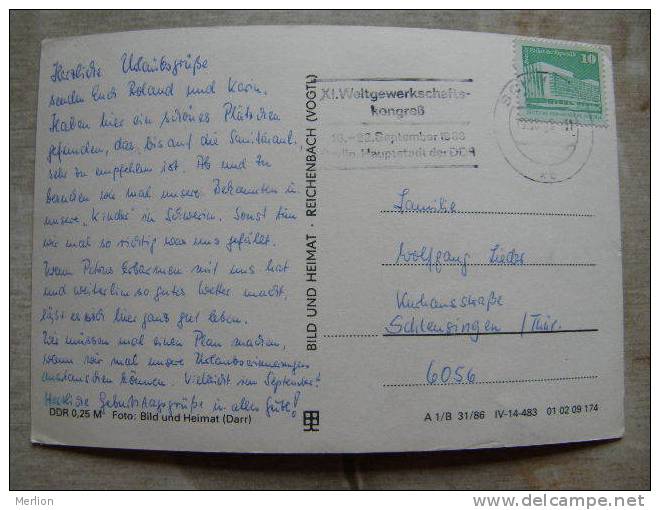 Herzliche Urlaubsgrüße
senden Euch Roland und Karin.
Haben hier ein schönes Plätzchen
gefunden, das, bis auf die Sanitäranl.,
sehr zu empfehlen ist. Ab und zu
besuchen wir mal unsere Bekannten u.
unsere „Kinder" in Schwerin. Sonst tun
wir mal so richtig was uns gefällt.
Wenn Petrus Erbarmen mit uns hat
und weiterhin so gutes Wetter macht,
läßt es sich hier ganz gut leben.
Wir müssen mal einen Plan machen,
wann wir mal unsere Urlaubserinnerungen
austauschen können. Vielleicht im September?
Herzliche Geburtstagsgrüße u. alles Gute!
DDR 0,25 M Foto: Bild und Heimat (Darr)
BILD UND HEIMAT · REICHENBACH (VOGTL)
XI. Weltgewerkschafts-
kongreß
16.-22. September 1986
Berlin, Hauptstadt der DDR
10
Familie
Wolfgang
Schleusingen / Thür.
6056
A 1/B 31/86 IV-14-483 01 02 09 174
Merlion
www.delcampe.net